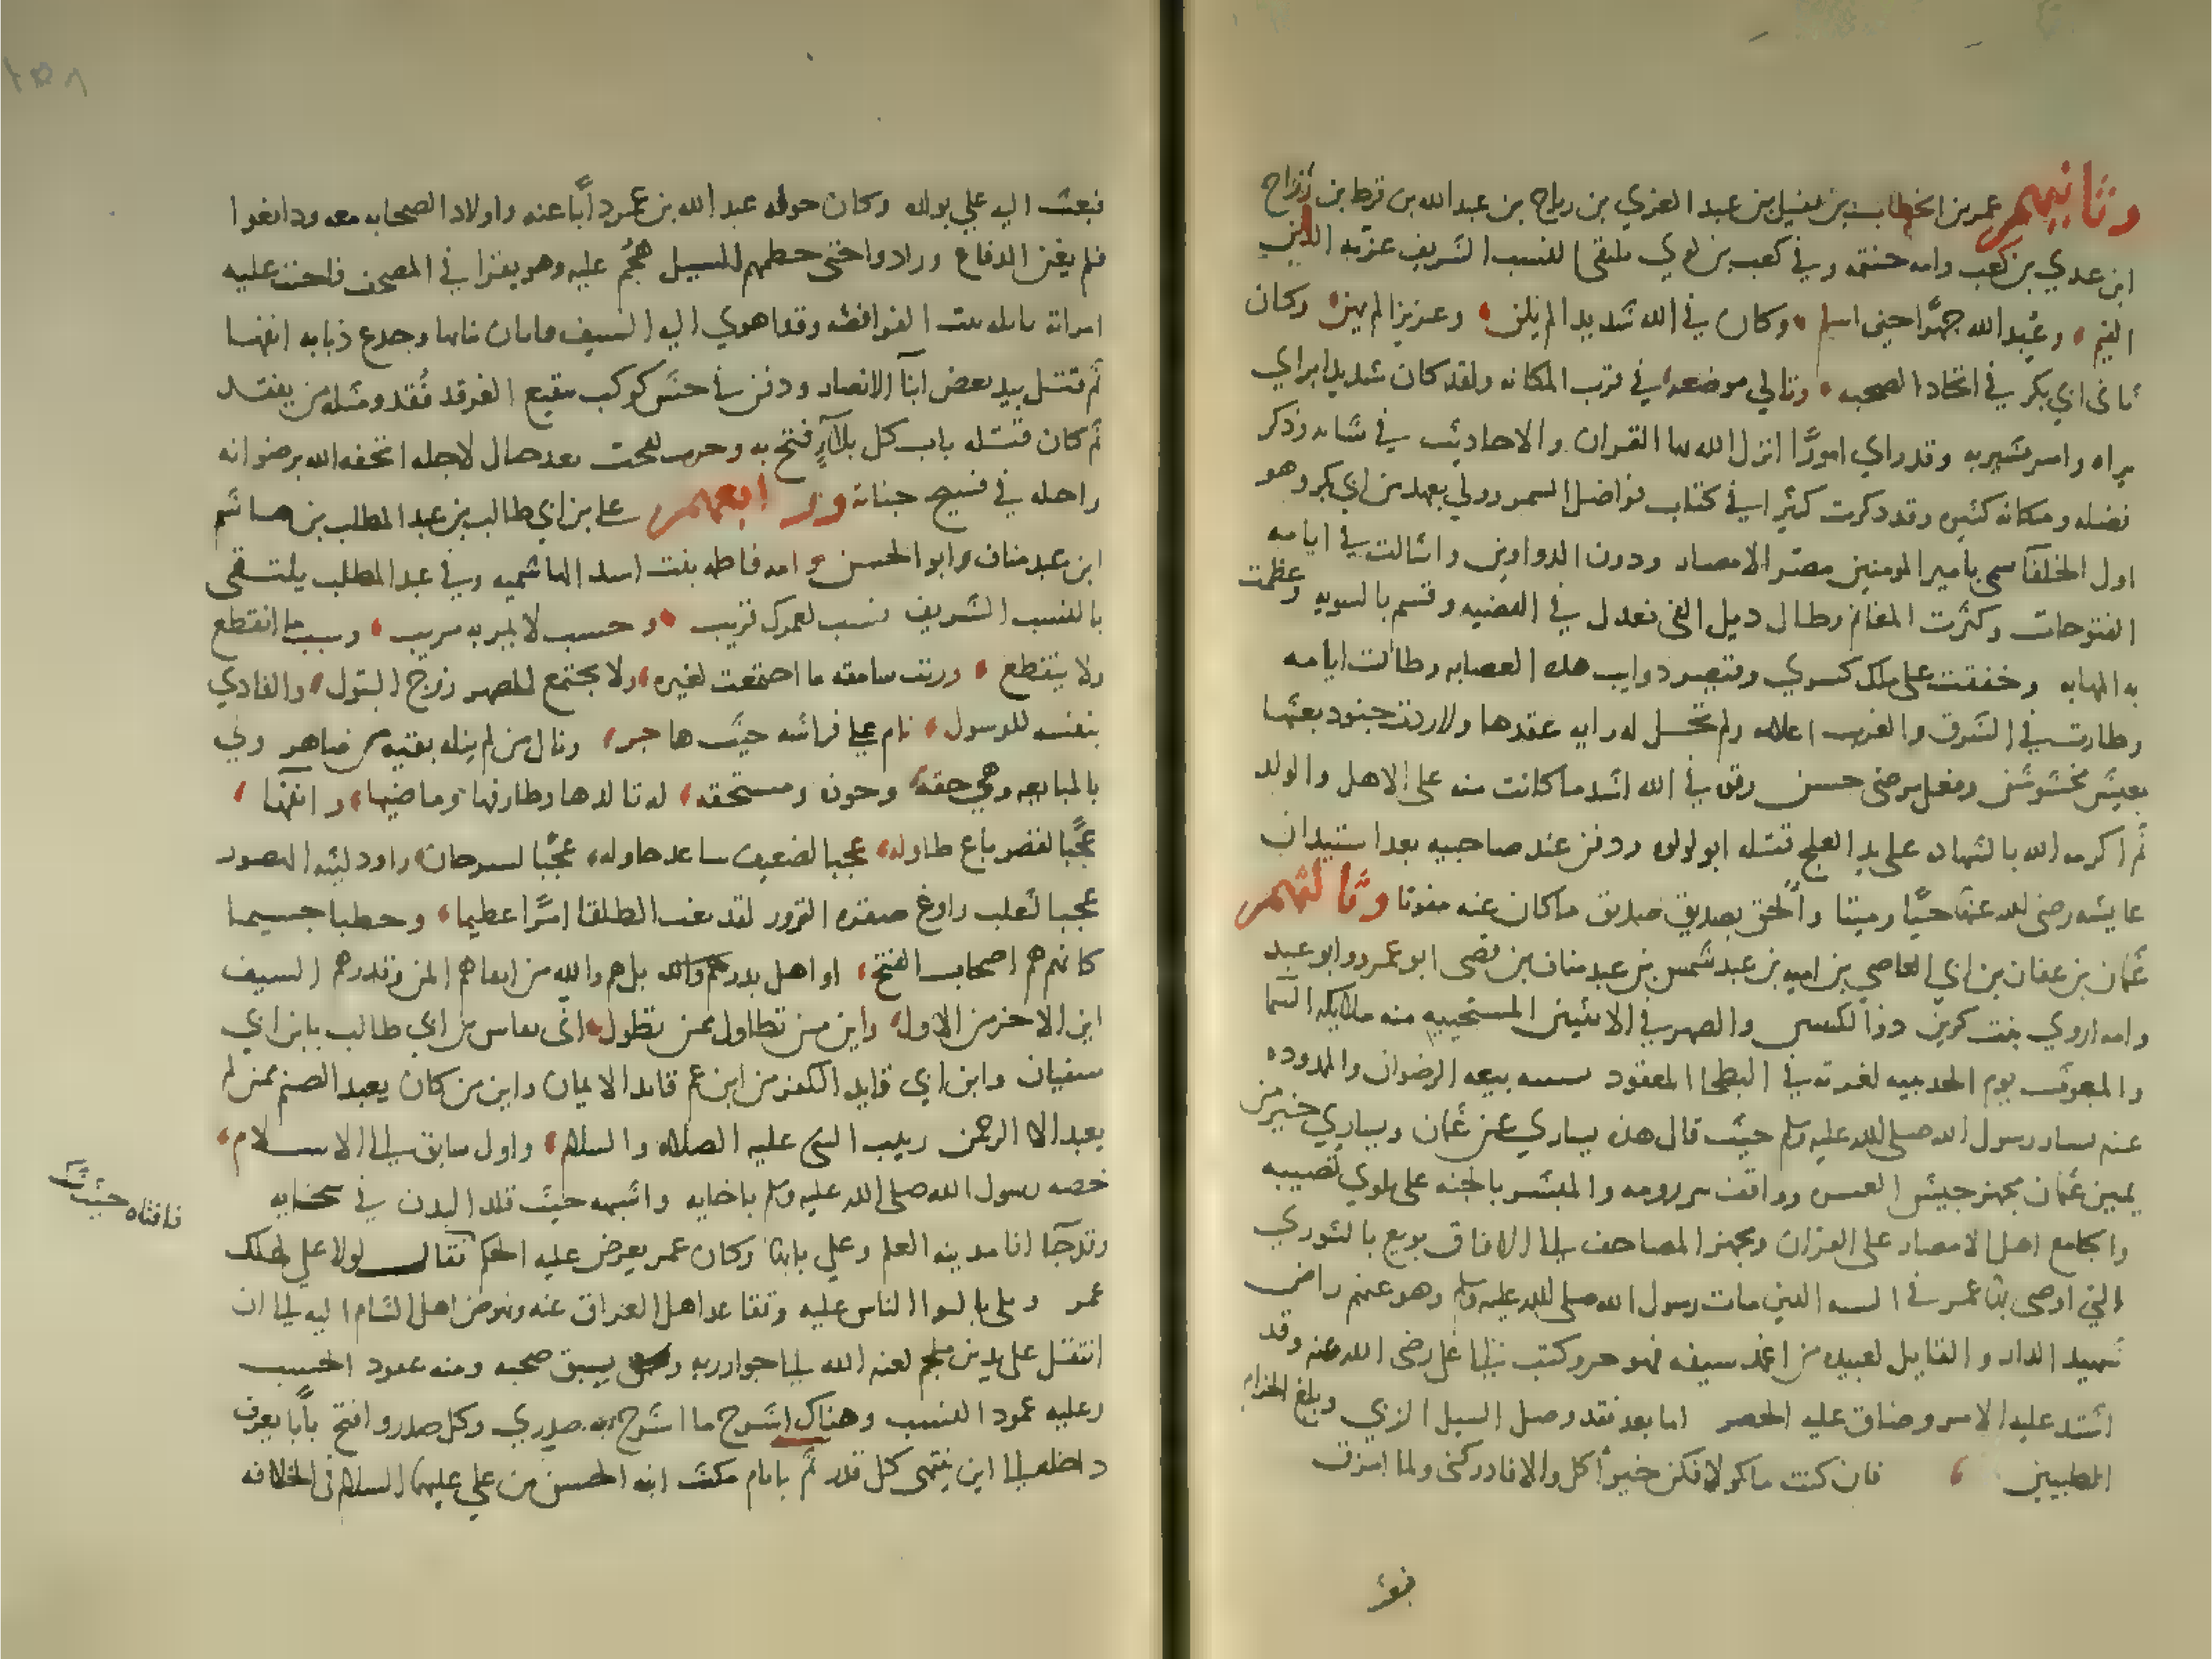 وثانيهم عمر بن الخطاب بن نفيل بن عبد العزي بن رياح بن عبد الله بن قرط بن رزاح
ابن عدي بن كعب وامه حنتمه وفي كعب بن لوي يلتقى بالنسب الشريف عز به الدين
القيم وعُبد الله جهرًا حين اسلم وكان في الله شديدا لم يلن وعزيزا لم يهن وكان
ثاني ابي بكر في اتخاد الصحبه وتالي موضعه في قرب المكانه ولقد كان شديدا براي
يراه وامر يشير به وقد راي امورًا انزل الله بها القران والاحاديث في شانه وذكر
فضله ومكانه كثيره وقد ذكرت كثيرا في كتاب فواضل السمر وولي بعهد من ابي بكر وهو
اول الخلفا سمى بامير المومنين مصّر الامصار ودون الدواوين وانثالت في ايامه
الفتوحات وكثرت المغانم وطال ذيل الفئ فعدل في القضيه وقسم بالسويه وعظمت
به المهابه وخفقت على ملك كسري وقيصر ذوايب هذه العصابه وطالت ايامه
وطارت في الشرق والغرب اعلامه ولم تحلل له رايه عقدها ولا ردت جنود بعثها
بعيش مخشوشن وفعل مرضى حسن ورق في الله اشد ما كانت منه على الاهل والولد
ثم اكرمه الله بالشهاده على يد العلج قتله ابو لولوه ودفن عند صاحبيه بعد استيدان
عايشه رضى الله عنها حيًّا وميتا وألحق بصديق صديق ما كان عنه مفوتا وثالثهم
عثمان بن عفان بن ابي العاصي بن اميه بن عبد شمس بن عبد مناف بن قصى ابو عمرو وابو عبد
وامه اروي بنت كريز والصهر في الابنتين المستحييه منه ملايكه السما
والمبعوث يوم الحديبيه لغرته في البطحا المعقود بسببه بيعه الرضوان والممدوده
عنه يسار رسول الله صلى الله عليه وسلم حيث قال هذه يساري عن عثمان ويساري خير من
يمين عثمان مجهز جيش العسره وواقف بير رومه والمبشر بالجنه على بلوي تصيبه
والجامع اهل الامصار على القران ومجهز المصاحف الى الافاق بويع بالشوري
التي اوصى بها عمر في السته الذين مات رسول الله صلى الله عليه وسلم وهو عنهم راض
شهيد الدار والقايل لعبيده من اغمد سيفه فهو حر وكتب الى علي رضى الله عنه وقد
اشتد عليه الامر وضاق عليه الحصر اما بعد فقد وصل السيل الزبي وبلغ الحزام
الطبيين فان كنت ماكولا فكن خير أكل والا فادركني ولما امزق
فبعث
فبعث اليه علي بولده وكان حوله عبد الله بن عمرو اولاد الصحابه معه ودافعوا
فلم يغن الدفاع وزادوا حتى حطمهم السيل هُجُم عليه وهو يقرا في المصحف فاحنت عليه
امراته نايله بنت الفرافصه وقد اهوي اليه السيف فابان بنانها وجدع ذبابه انفها
ثم قتل بيد بعض ابنآ الانصار ودفن في حش كوكب بقيع الغرقد فُقد ومثله من يفتقد
ثم كان قتله باب كل بلآءٍ فتح به وحرب لقحت بعد حيال لاجله اتحفه الله برضوانه
واحله في فسيح جنانه ورابعهم علي بن ابي طالب بن عبد المطلب بن هاشم
ابن عبد مناف وابو الحسن وامه فاطمه بنت اسد الهاشميه وفي عبد المطلب يلتقى
بالنسب الشريف نسب لعمرك قريب وحسب لا يمر به مريب وسبب ما انقطع
ولا ينقطع ورتب سامقه ما اجتمعت لغيره ولا يجتمع للصهر زوج البتول والفادي
بنفسه للرسول نام علي فراشه حيث هاجر ونال من لم ينله بقيه من ضاهر ولي
بالمبايعه وهي حقهُ وحوزه ومستحقه له تالدها وطارفها وماضيها وانفها
عجبًا لقصر باع طاوله عجبا لضعيف ساعد حاوله عجبًا لسرحان راود ليثه الهصور
عجبا لثعلب راوغ صقره لقد بغت الطلقا امرًا عظيما وخطبا جسيما
كانهم هم اصحاب الفتح او اهل بدر هم والله بل هم والله من ابعاهم المن وقدرهم السيف
اين الاخر من الاول واين من تطاول ممن تطول انى يقاس بن ابي طالب بابن ابي
سفيان وابن ابي قايد الكفر من ابن عم قايد الايمان واين من كان يعبد الصنم ممن لم
يعبد الا الرحمن ربيب النبي عليه الصلاه والسلام واول سابق الى الاسلام
خصه رسول الله صلى الله عليه وسلم باخايه واشبهه حيث قلد البدن في سخايه
وقد جآ انا مدينه العلم وعلي بابها وكان عمر يعرض عليه الحكم فقال لولا علي لهلك
عمر وبلى بالبوا الناس عليه وتقاعد اهل العراق عنه ونهوض اهل الشام اليه الى ان
انتقل على يد بن ملجم لعنه الله الى جوار ربه يسبق صحبه ومنه عمود الحسب
وعليه عمود النسب وهناك اشرح ما اشرح به صدري وكل صدر وافتح بابًا يعرف
داخله الى اين ينتهى كل قدر ثم بايام مكث ابنه الحسن بن علي عليهما السلام في الخلافه
فاقتاه حيث شك
١٥٨